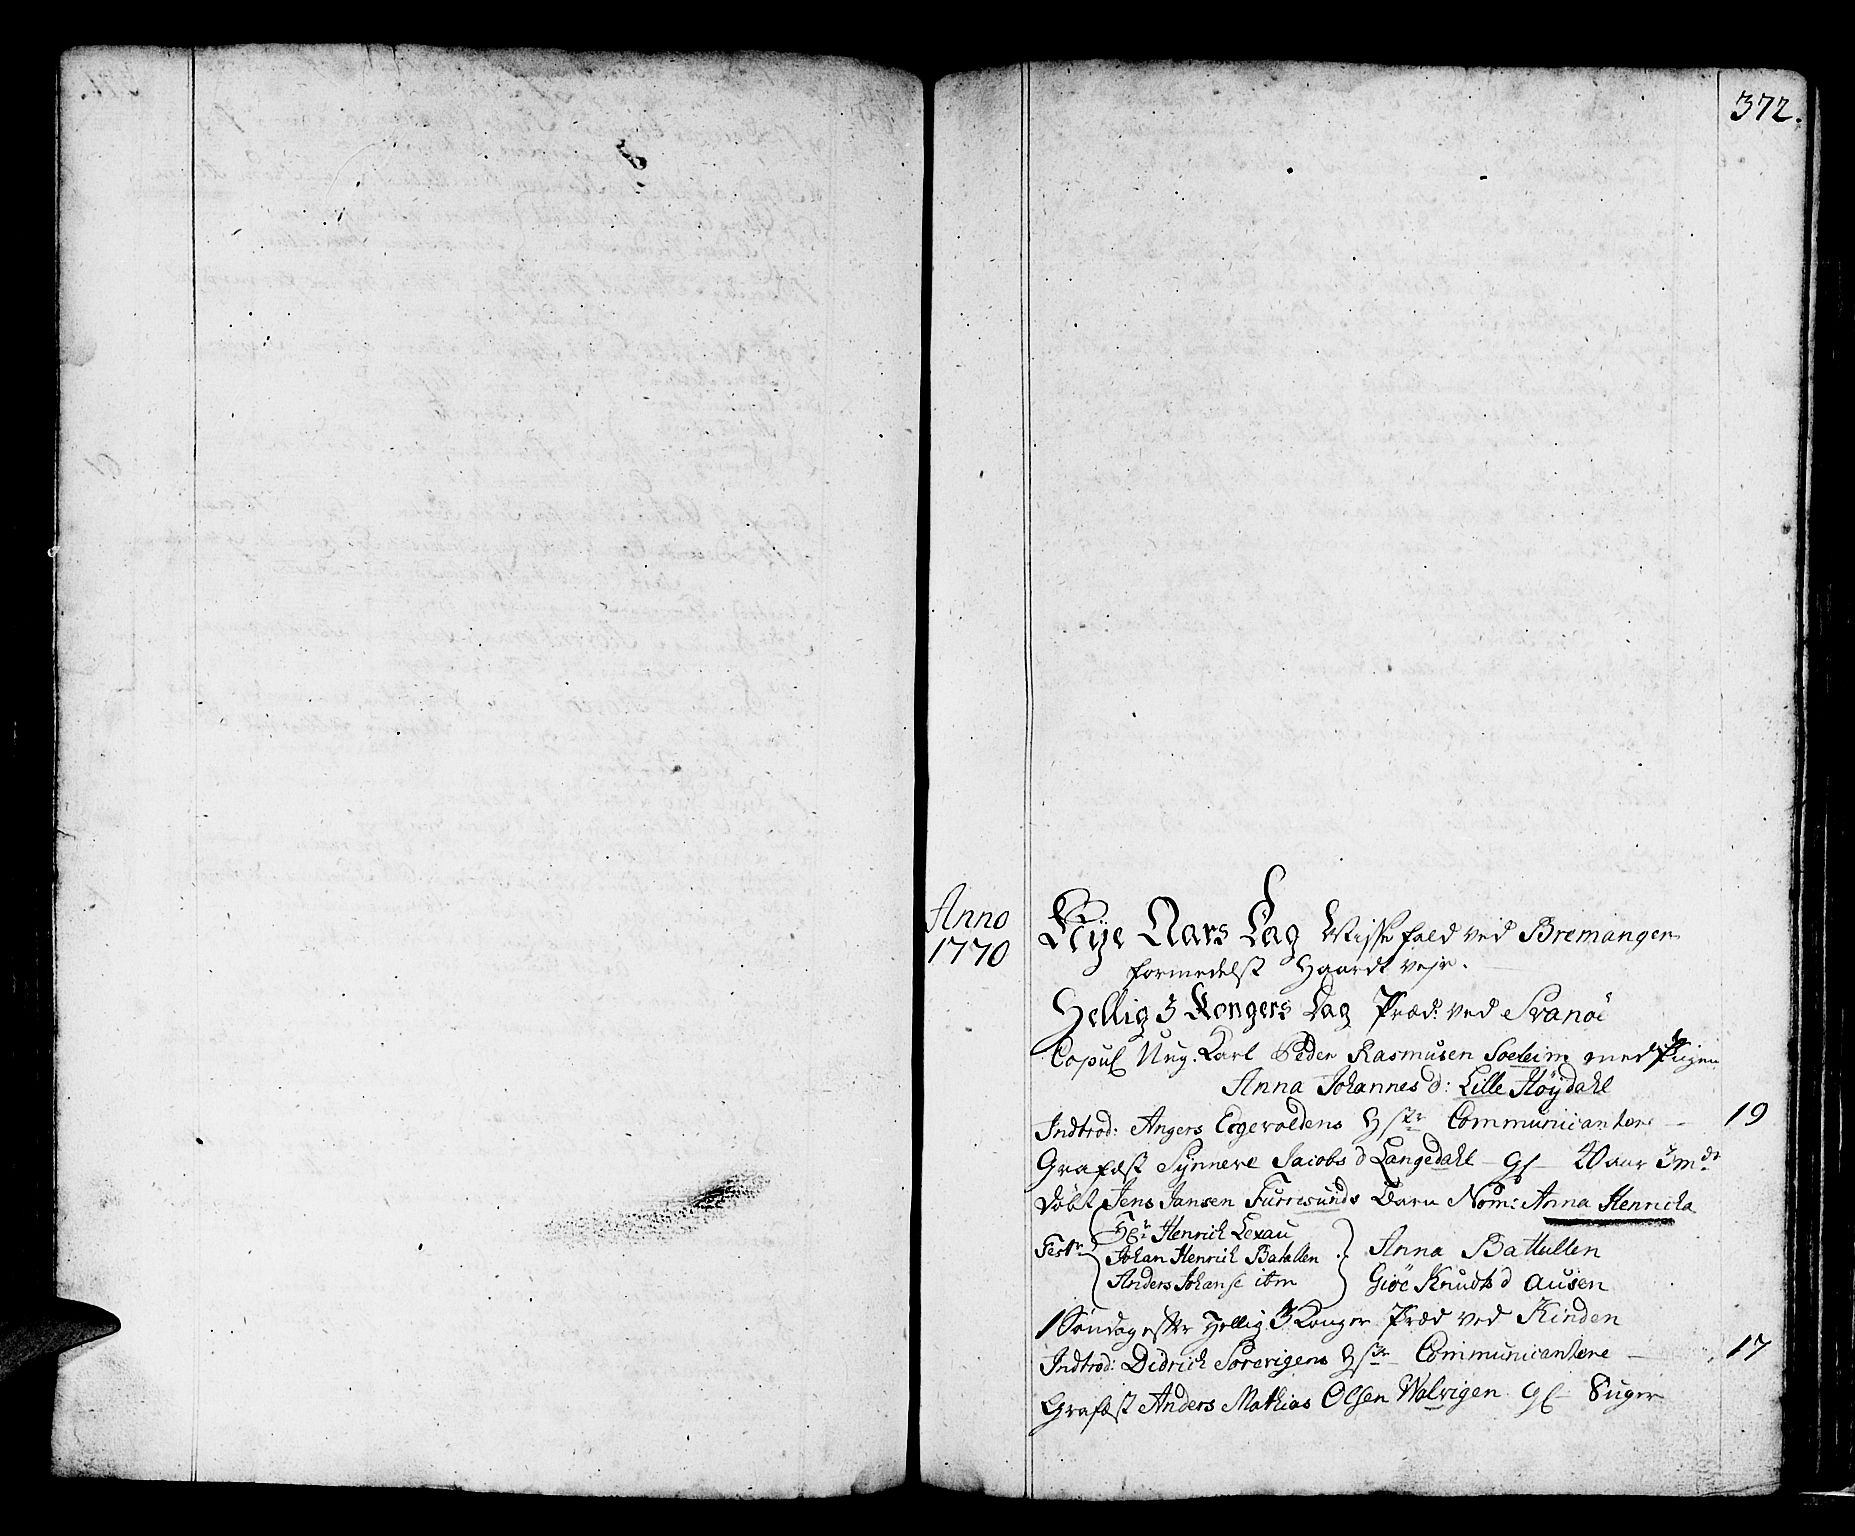 372.
Anno
1770
Nye Aars Dag Messefald ved Bremanger
formedelst Haardt vejr.
Hellig 3 Kongers Dag Præd: ved Svanöe
Copul: Ung. Karl Peder Rasmusen Soeleim med Pigen
Anna Johannes d: Lille Höydahl
Indtrod: Angers Egevoldens Hstr Communicantere — 19
Grafæst Synneve Jacobs d Langedahl — Gl — 20 aar 3 mdr
Döbt Jens Jansen Furresunds Barn Nom: Anna Henricha
Test: Hr Henrich Lexau
Johan Henrich Batalden
Anders Johanse ibm
Anna Batullen
Giöe Knudts d Ausen
1 Söndag efter Hellig 3 Konger Præd ved Kinden
Indtrod: Didrich Sorevigens Hstr Communicantere — 17
Grafæst Anders Mathias Olsen Walvigen Gl — 8 uger